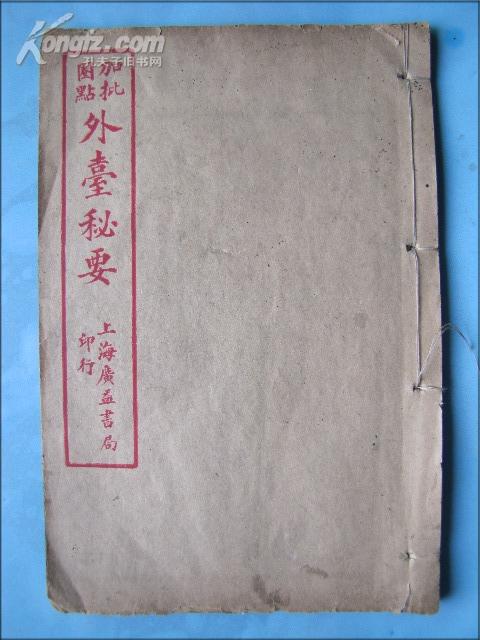 Kongfz.com
孔夫子旧书网
加批
圈點
外臺秘要
上海廣益書局
印行